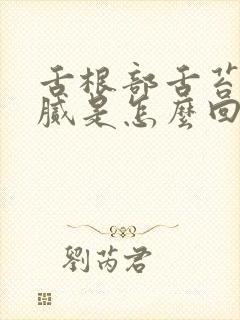 舌根部舌苔
膩是怎麼回
劉芮君